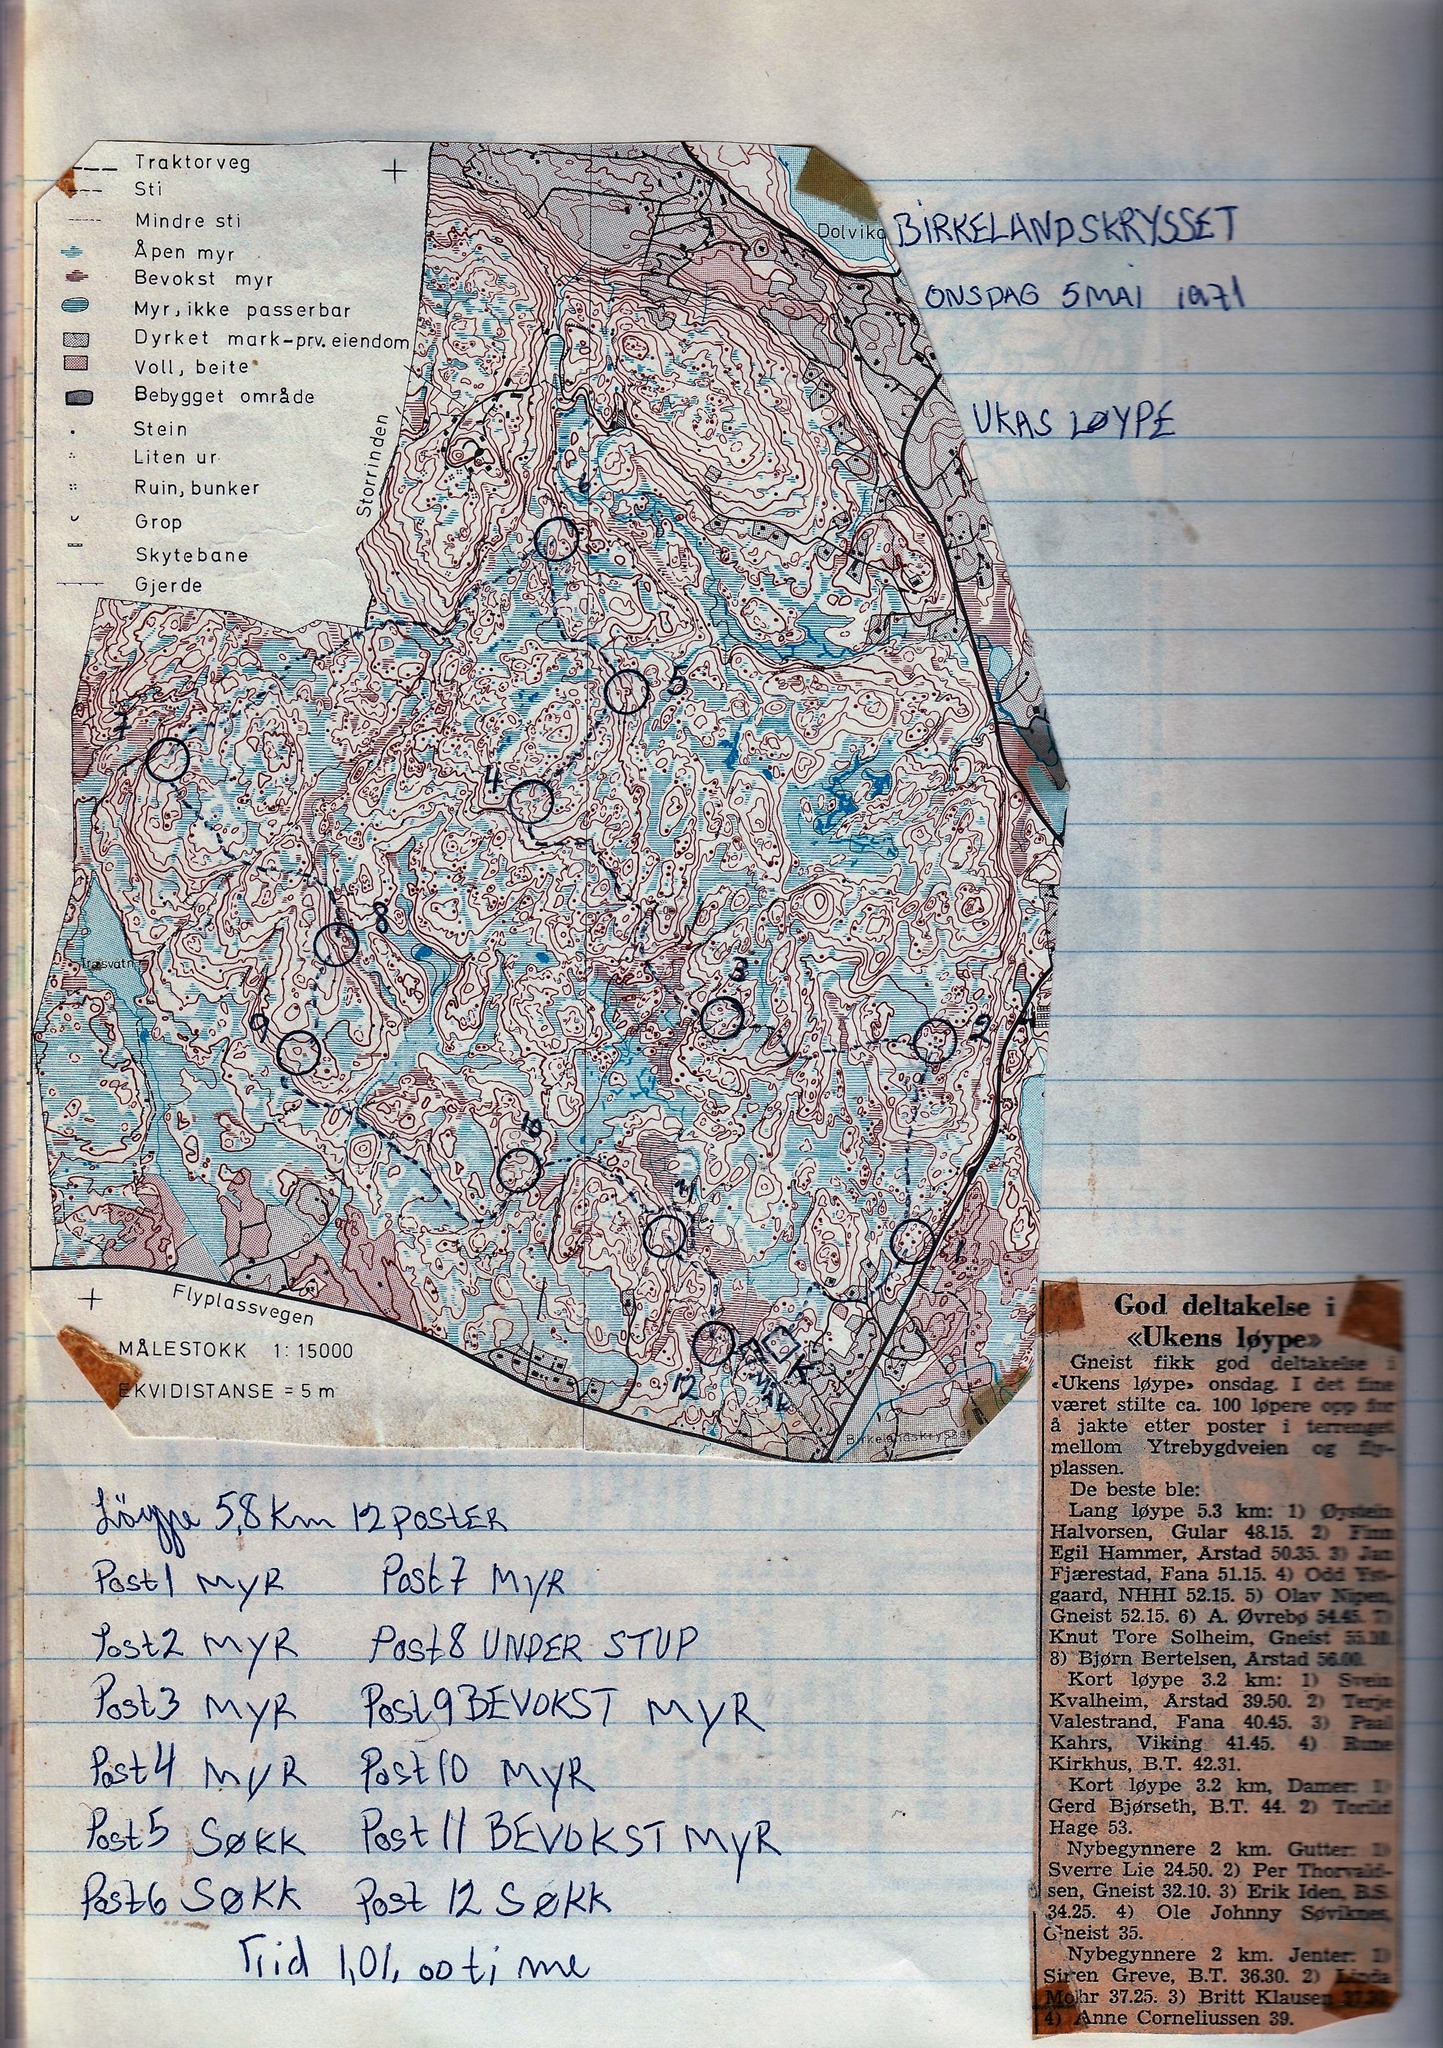 Traktorveg
Sti
Mindre sti
Åpen myr
Bevokst myr
Myr, ikke passerbar
Dyrket mark-prv. eiendom
Voll, beite
Bebygget område
Stein
Liten ur
Ruin, bunker
Grop
Skytebane
Gjerde
Storrinden
Dolvika
BIRKELANDSKRYSSET
ONSDAG 5 MAI 1971
UKAS LØYPE
6
5
7
4
8
3
2
9
10
11
1
12
K
Flyplassvegen
MÅLESTOKK 1:15000
EKVIDISTANSE = 5 m
Birkelandskrysset
Löype 5,8 Km 12 POSTER
Post 1 MYR Post 7 MYR
Post 2 MYR Post 8 UNDER STUP
Post 3 MYR Post 9 BEVOKST MYR
Post 4 MYR Post 10 MYR
Post 5 SØKK Post 11 BEVOKST MYR
Post 6 SØKK Post 12 SØKK
Tid 1,01,00 time
God deltakelse i
«Ukens løype»
Gneist fikk god deltakelse i
«Ukens løype» onsdag. I det fine
været stilte ca. 100 løpere opp for
å jakte etter poster i terrenget
mellom Ytrebygdveien og fly-
plassen.
De beste ble:
Lang løype 5.3 km: 1) Øystein
Halvorsen, Gular 48.15. 2) Finn
Egil Hammer, Arstad 50.35. 3) Jan
Fjærestad, Fana 51.15. 4) Odd Yst-
gaard, NHHI 52.15. 5) Olav Nipen,
Gneist 52.15. 6) A. Øvrebø 54.45. 7)
Knut Tore Solheim, Gneist 55.30.
8) Bjørn Bertelsen, Arstad 56.00.
Kort løype 3.2 km: 1) Svein
Kvalheim, Arstad 39.50. 2) Terje
Valestrand, Fana 40.45. 3) Paal
Kahrs, Viking 41.45. 4) Rune
Kirkhus, B.T. 42.31.
Kort løype 3.2 km, Damer: 1)
Gerd Bjørseth, B.T. 44. 2) Torild
Hage 53.
Nybegynnere 2 km. Gutter: 1)
Sverre Lie 24.50. 2) Per Thorvald-
sen, Gneist 32.10. 3) Erik Iden, B.S.
34.25. 4) Ole Johnny Søviknes,
Gneist 35.
Nybegynnere 2 km. Jenter: 1)
Siren Greve, B.T. 36.30. 2) Linda
Mohr 37.25. 3) Britt Klausen
4) Anne Corneliussen 39.